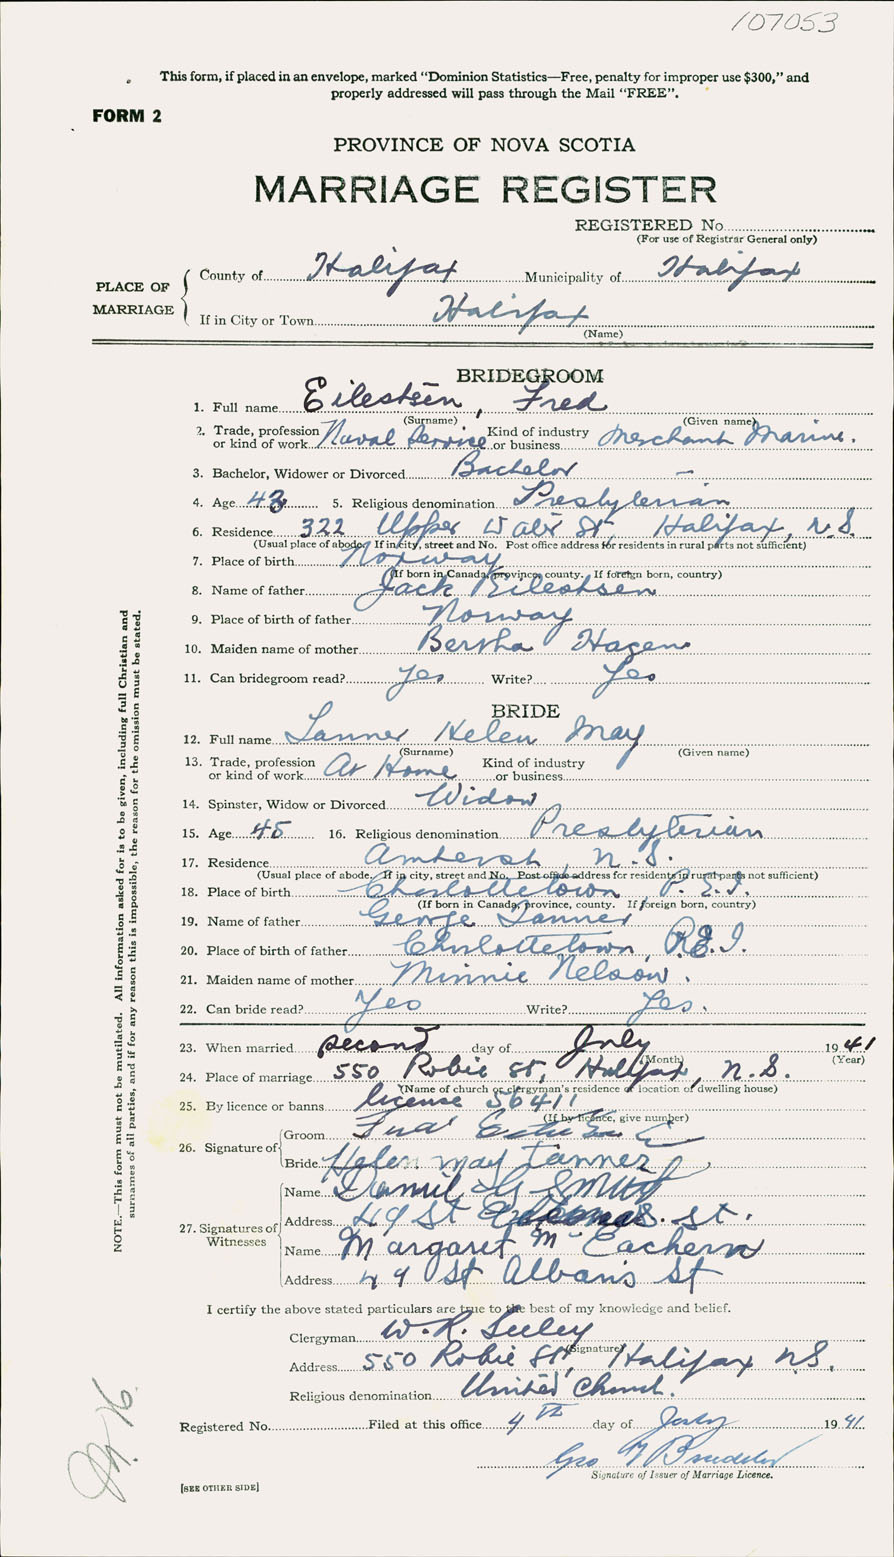 107053
This form, if placed in an envelope, marked “Dominion Statistics—Free, penalty for improper use $300,” and
properly addressed will pass through the Mail “FREE”.
FORM 2
PROVINCE OF NOVA SCOTIA
MARRIAGE REGISTER
REGISTERED No.
(For use of Registrar General only)
PLACE OF MARRIAGE
County of Halifax Municipality of Halifax
If in City or Town Halifax
(Name)
BRIDEGROOM
1. Full name Eilestsen, Fred
(Surname) (Given name)
2. Trade, profession or kind of work Naval Service Kind of industry or business Merchant Marine.
3. Bachelor, Widower or Divorced Bachelor
4. Age 43 5. Religious denomination Presbyterian
6. Residence 322 Upper Water St, Halifax, N.S.
(Usual place of abode. If in city, street and No. Post office address for residents in rural parts not sufficient)
7. Place of birth Norway
(If born in Canada, province, county. If foreign born, country)
8. Name of father Jack Eilestsen
9. Place of birth of father Norway
10. Maiden name of mother Bertha Hagen
11. Can bridegroom read? Yes Write? Yes
BRIDE
12. Full name Tanner Helen May
(Surname) (Given name)
13. Trade, profession or kind of work At Home Kind of industry or business
14. Spinster, Widow or Divorced Widow
15. Age 45 16. Religious denomination Presbyterian
17. Residence Amherst, N.S.
(Usual place of abode. If in city, street and No. Post office address for residents in rural parts not sufficient)
18. Place of birth Charlottetown, P.E.I.
(If born in Canada, province, county. If foreign born, country)
19. Name of father George Tanner
20. Place of birth of father Charlottetown, P.E.I.
21. Maiden name of mother Minnie Nelson.
22. Can bride read? Yes Write? Yes.
23. When married second day of July 1941
(Month) (Year)
24. Place of marriage 550 Robie St, Halifax, N.S.
(Name of church or clergyman's residence or location of dwelling house)
25. By licence or banns license 56411
(If by licence, give number)
26. Signature of
Groom Fred
Bride Helen May Tanner
27. Signatures of Witnesses
Name Smith
Address 49 St St.
Name Margaret McEachern
Address 49 St Albans St
I certify the above stated particulars are true to the best of my knowledge and belief.
Clergyman W. R. Seeley
(Signature)
Address 550 Robie St, Halifax N.S.
Religious denomination United Church.
Registered No. Filed at this office 4th day of July 1941
Geo
Signature of Issuer of Marriage Licence.
[SEE OTHER SIDE]
NOTE.—This form must not be mutilated. All information asked for is to be given, including full Christian and
surnames of all parties, and if for any reason this is impossible, the reason for the omission must be stated.